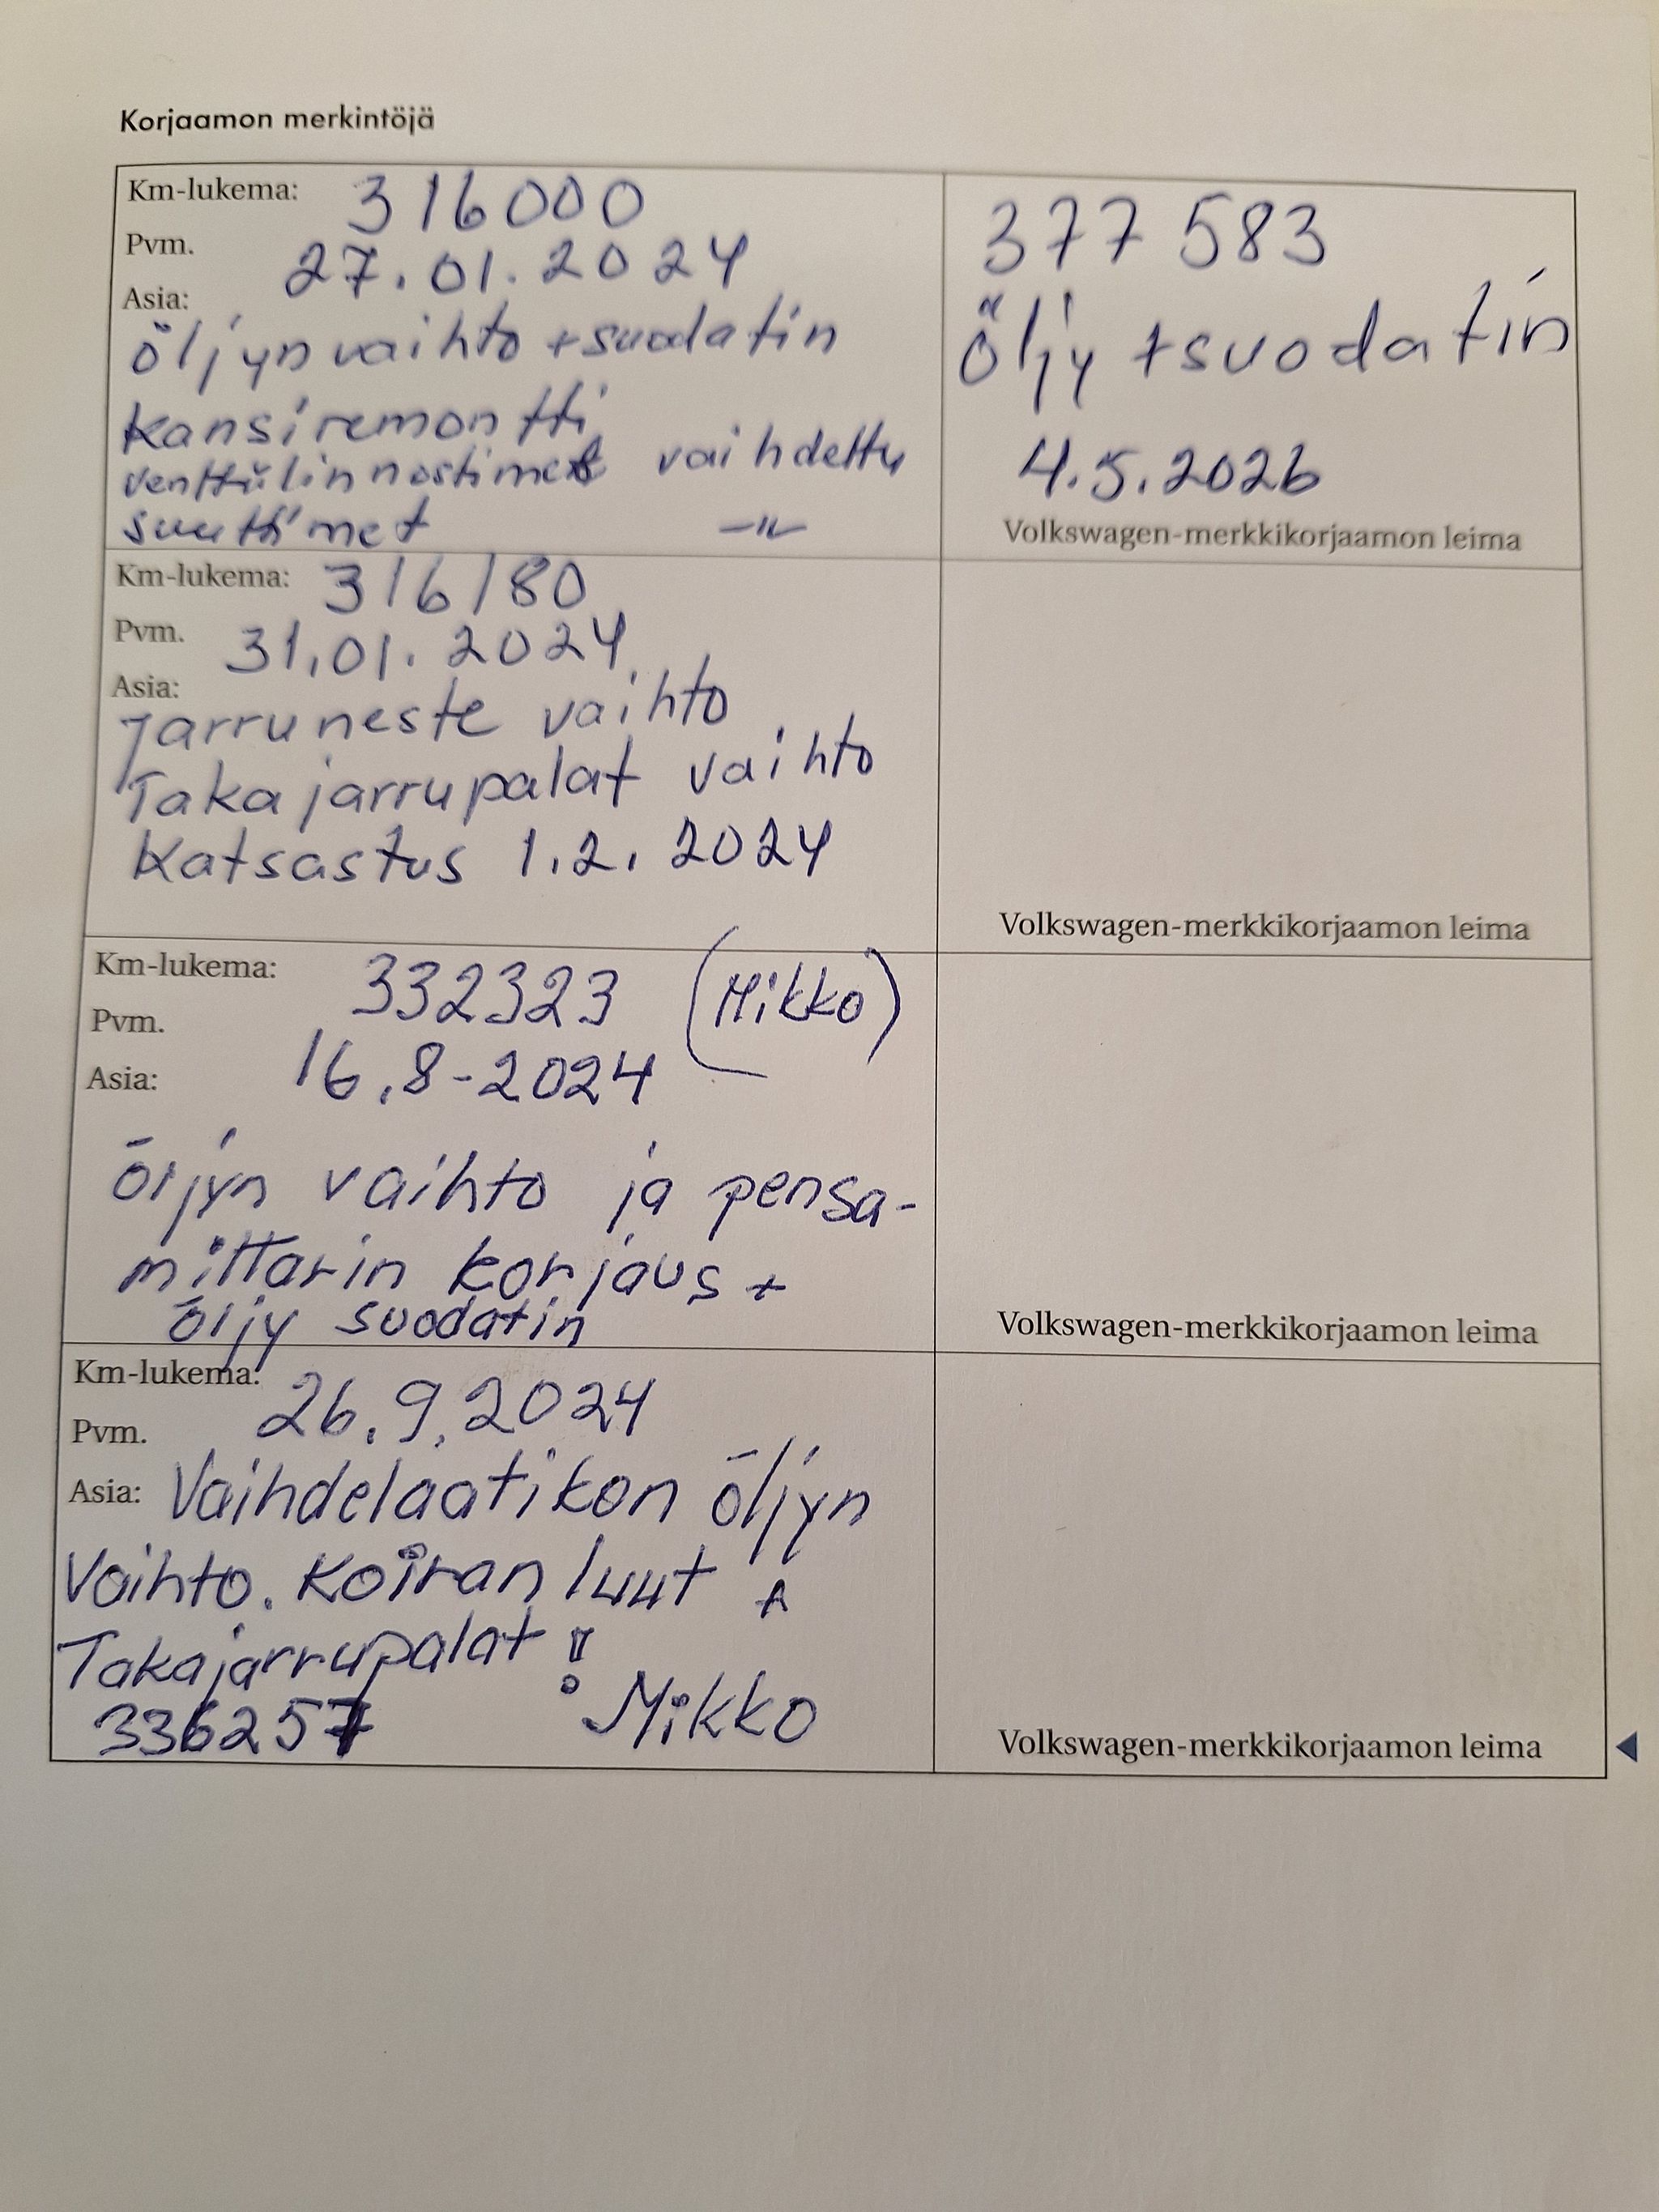 Korjaamon merkintöjä
Km-lukema: 316000
Pvm. 27.01.2024
Asia:
öljyn vaihto + suodatin
kansiremontti
venttiilinnostimet vaihdettu
suuttimet -"-
377 583
öljy + suodatin
4.5.2026
Volkswagen-merkkikorjaamon leima
Km-lukema: 316180
Pvm. 31.01.2024
Asia:
Jarruneste vaihto
Taka jarrupalat vaihto
Katsastus 1.2.2024
Volkswagen-merkkikorjaamon leima
Km-lukema: 332323 (Mikko)
Pvm.
Asia: 16.8-2024
öljyn vaihto ja pensa-
mittarin korjaus +
öljy suodatin
Volkswagen-merkkikorjaamon leima
Km-lukema: 26.9.2024
Pvm.
Asia: Vaihdelaatikon öljyn
Vaihto. Koiran luut
Takajarrupalat !
336257 Mikko
Volkswagen-merkkikorjaamon leima